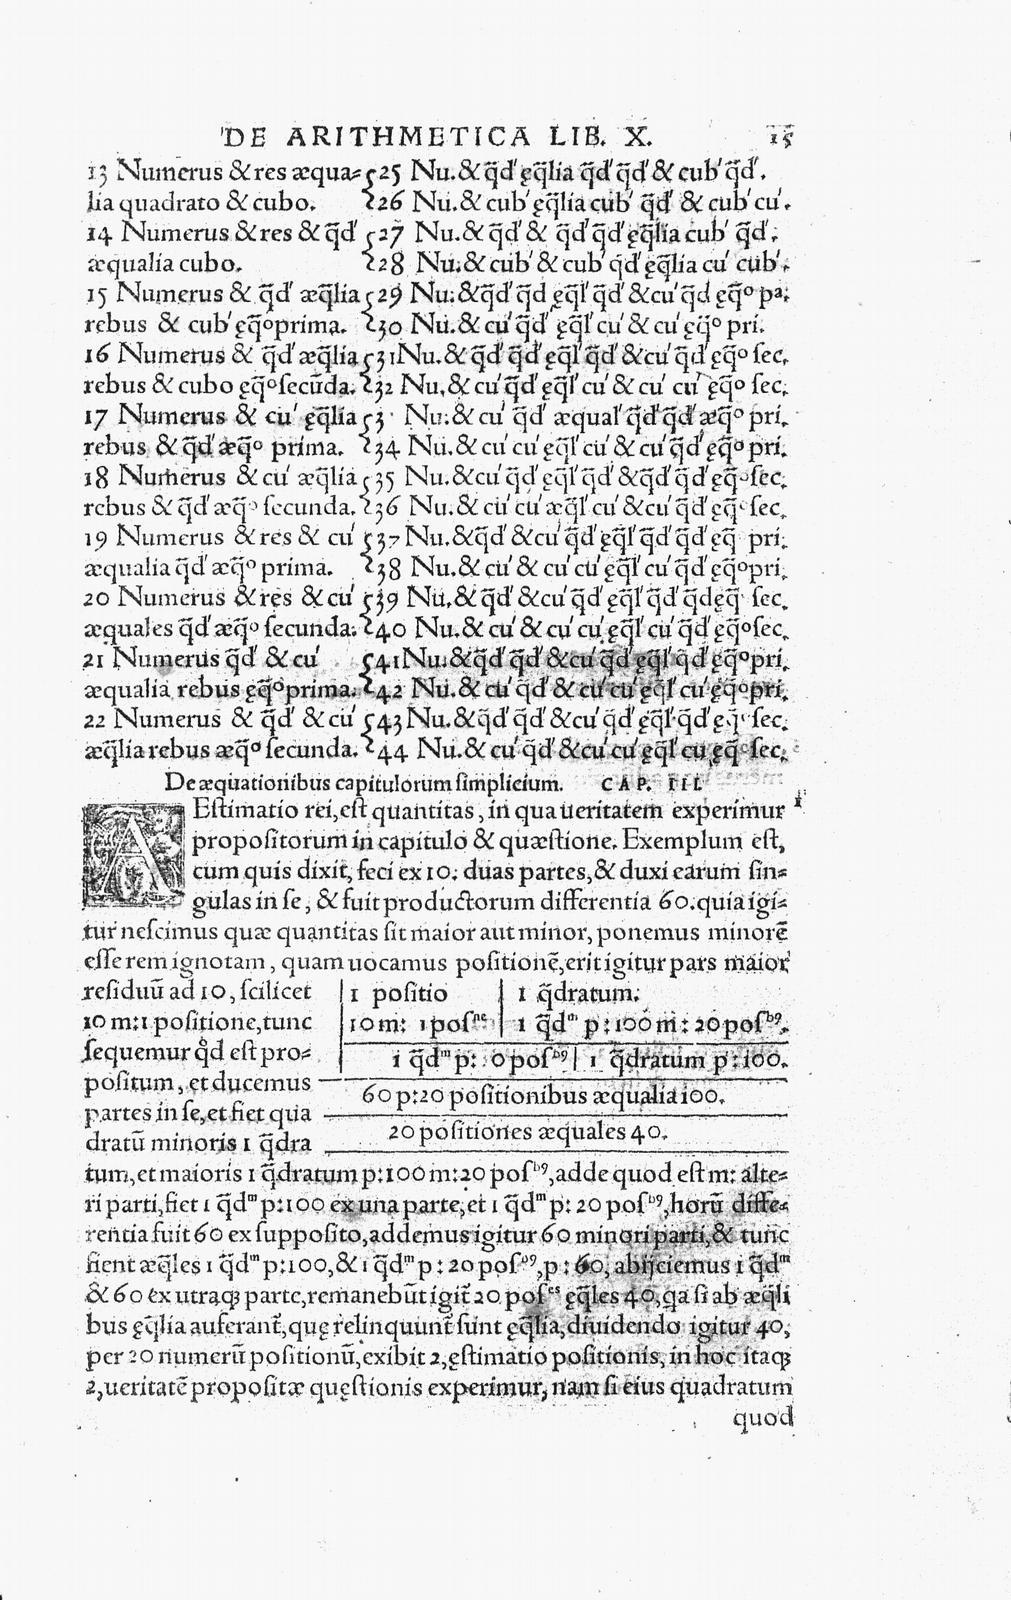 DE ARITHMETICA LIB. X. 15
13 Numerus & res æqua=
lia quadrato & cubo.
14 Numerus & res & q̃d'
æqualia cubo.
15 Numerus & q̃d' æq̃lia
rebus & cub' ęq̃º prima.
16 Numerus & q̃d' æq̃lia
rebus & cubo ęq̃º secũda.
17 Numerus & cu' ęq̃lia
rebus & q̃d' æq̃º prima.
18 Numerus & cu' æq̃lia
rebus & q̃d' æq̃º secunda.
19 Numerus & res & cu'
æqualia q̃d' æq̃º prima.
20 Numerus & res & cu'
æquales q̃d' æq̃º secunda.
21 Numerus q̃d' & cu'
æqualia rebus ęq̃º prima.
22 Numerus & q̃d' & cu'
æq̃lia rebus æq̃º secunda.
25 Nu. & q̃d' ęq̃lia q̃d' q̃d' & cub' q̃d'.
26 Nu. & cub' ęq̃lia cub' q̃d' & cub' cu'.
27 Nu. & q̃d' & q̃d' q̃d' ęq̃lia cub' q̃d'.
28 Nu. & cub' & cub' q̃d' ęq̃lia cu' cub'.
29 Nu. & q̃d' q̃d ęq̃l' q̃d' & cu' q̃d ęq̃º pª.
30 Nu. & cu' q̃d' ęq̃l' cu' & cu' cu' ęq̃º pri.
31 Nu. & q̃d' q̃d' ęq̃l' q̃d' & cu' q̃d' ęq̃º sec.
32 Nu. & cu' q̃d' ęq̃l' cu' & cu' cu' ęq̃º sec.
3 Nu. & cu' q̃d' æqual' q̃d' q̃d' æq̃º pri.
34 Nu. & cu' cu' ęq̃l' cu' & cu' q̃d' ęq̃º pri.
35 Nu. & cu' q̃d' ęq̃l' q̃d' & q̃d' q̃d' ęq̃º sec.
36 Nu. & cu' cu' æq̃l' cu' & cu' q̃d' ęq̃º sec.
37 Nu. & q̃d' & cu' q̃d' ęq̃l' q̃d' q̃d' ęq̃ pri.
38 Nu. & cu' & cu' cu' ęq̃l' cu' q̃d' ęq̃º pri.
39 Nu. & q̃d' & cu' q̃d' ęq̃l' q̃d' q̃d ęq̃ sec.
40 Nu. & cu' & cu' cu' ęq̃l' cu' q̃d' ęq̃º sec.
41 Nu. & q̃d' q̃d' & cu' q̃d' ęq̃l' q̃d' ęq̃º pri.
42 Nu. & cu' q̃d' & cu' cu' ęq̃l' cu' ęq̃º pri.
43 Nu. & q̃d' q̃d' & cu' q̃d' ęq̃l' q̃d' ęq̃º sec.
44 Nu. & cu' q̃d' & cu' cu' ęq̃l' cu' ęq̃º sec.
De æquationibus capitulorum simplicium. CAP. III.
AEstimatio rei, est quantitas, in qua ueritatem experimur 1
propositorum in capitulo & quæstione. Exemplum est,
cum quis dixit, feci ex 10. duas partes, & duxi earum sin=
gulas in se, & fuit productorum differentia 60. quia igi=
tur nescimus quæ quantitas sit maior aut minor, ponemus minorẽ
esse rem ignotam, quam uocamus positionẽ, erit igitur pars maior
residuũ ad 10, scilicet
10 m: 1 positione, tunc
sequemur q̊d est pro=
positum, et ducemus
partes in se, et fiet qua
dratũ minoris 1 q̃dra
1 positio 1 q̃dratum.
10 m: 1 posⁿᵉ 1 q̃dᵐ p: 100 m: 20 posᵇ⁹.
1 q̃dᵐ p: 0 posᵇ⁹ 1 q̃dratum p: 100.
60 p: 20 positionibus æqualia 100.
20 positiones æquales 40.
tum, et maioris 1 q̃dratum p: 100 m: 20 posᵇ⁹, adde quod est m: alte=
ri parti, fiet 1 q̃dᵐ p: 100 ex una parte, et 1 q̃dᵐ p: 20 posᵇ⁹, horũ diffe=
rentia fuit 60 ex supposito, addemus igitur 60 minori parti, & tunc
fient æq̃les 1 q̃dᵐ p: 100, & 1 q̃dᵐ p: 20 posᵇ⁹, p: 60, abijciemus 1 q̃dᵐ
& 60 ex utraqꝫ parte, remanebũt igit̃ 20 posᵉˢ ęq̃les 40, qa si ab æq̃li
bus ęq̃lia auferant̃, quę relinquunt̃ sunt ęq̃lia, diuidendo igitur 40,
per 20 numerũ positionũ, exibit 2, ęstimatio positionis, in hoc itaqꝫ
2, ueritatẽ propositæ quęstionis experimur, nam si eius quadratum
quod